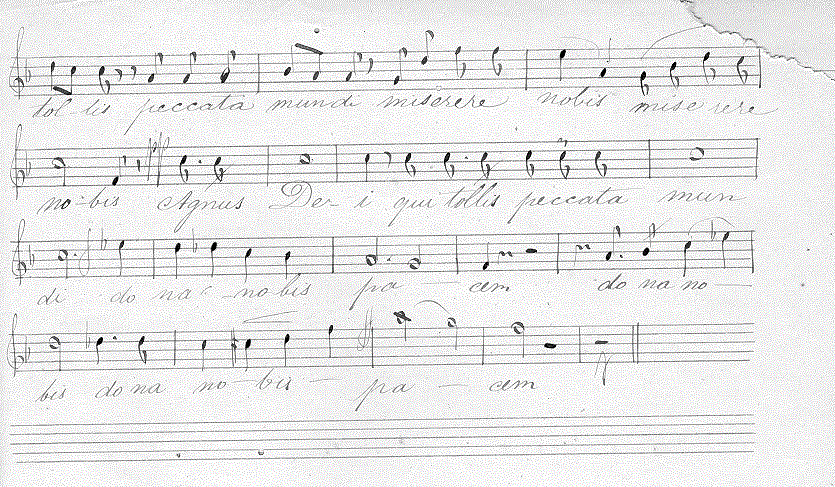 tol-lis peccata mundi miserere nobis miserere
no-bis Agnus De-i qui tollis peccata mun
di do na - nobis pa - cem do na no -
bis do na no - bis - pa - cem